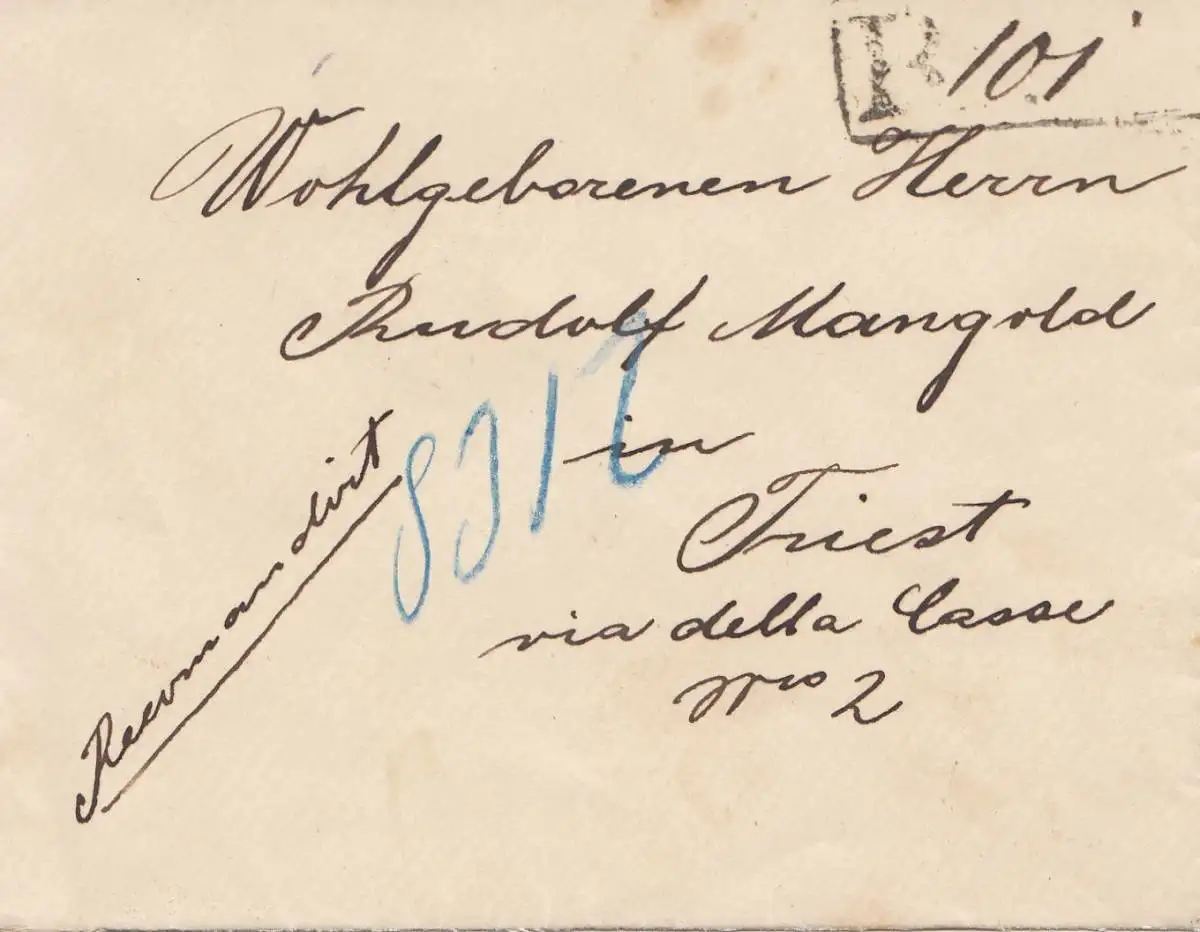 R 101
Wohlgeborenen Herrn
Rudolf Mangold
in
Triest
via della Casse
Nro 2
Recomandirt